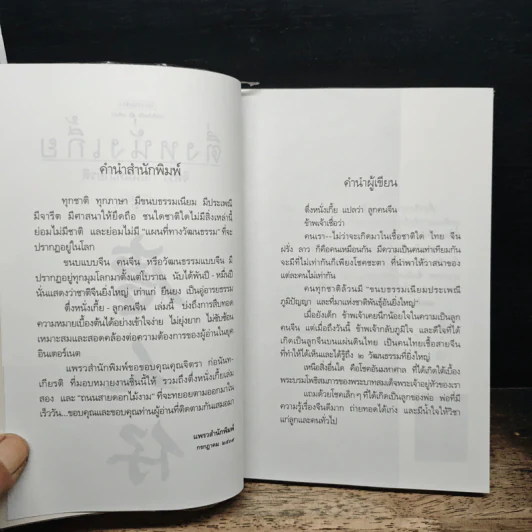 คำนำสำนักพิมพ์
ทุกชาติ ทุกภาษา มีขนบธรรมเนียม มีประเพณี
มีจารีต มีศาสนาให้ยึดถือ ชนใดชาติใดไม่มีสิ่งเหล่านี้
ย่อมไม่มีชาติ และย่อมไม่มี "แผนที่ทางวัฒนธรรม" ที่จะ
ปรากฏอยู่ในโลก
ขนบแบบจีน คนจีน หรือวัฒนธรรมแบบจีน มี
ปรากฏอยู่ทุกมุมโลกมาตั้งแต่โบราณ นับได้พันปี - หมื่นปี
นั่นแสดงว่าชาติจีนยิ่งใหญ่ เก่าแก่ ยืนยง เป็นอู่อารยธรรม
ตึ่งหนั่งเกี้ย - ลูกคนจีน เล่มนี้ บ่งถึงการสืบทอด
ความหมายเบื้องต้นได้อย่างเข้าใจง่าย ไม่ยุ่งยาก ไม่ซับซ้อน
เหมาะสมและสอดคล้องต่อความต้องการของผู้อ่านในยุค
อินเตอร์เนต
แพรวสำนักพิมพ์ขอขอบคุณคุณจิตรา ก่อนันท-
เกียรติ ที่มอบหมายงานชิ้นนี้ให้ รวมถึงตึ่งหนั่งเกี้ยเล่ม
สอง และ "ถนนสายดอกไม้งาม" ที่จะทยอยตามออกมาใน
เร็ววัน...ขอบคุณและขอบคุณท่านผู้อ่านที่ติดตามกันเสมอมา
แพรวสำนักพิมพ์
คำนำผู้เขียน
ตึ่งหนั่งเกี้ย แปลว่า ลูกคนจีน
ข้าพเจ้าเชื่อว่า
คนเรา--ไม่ว่าจะเกิดมาในเชื้อชาติใด ไทย จีน
ฝรั่ง ลาว ก็คือคนเหมือนกัน มีความเป็นคนเท่าเทียมกัน
จะมีที่ไม่เท่ากันก็เพียงโชคชะตา ที่นำพาให้วาสนาของ
แต่ละคนไม่เท่ากัน
คนทุกชาติล้วนมี "ขนบธรรมเนียมประเพณี
ภูมิปัญญา และที่มาแห่งชาติพันธุ์อันยิ่งใหญ่"
เมื่อยังเด็ก ข้าพเจ้าเคยนึกน้อยใจในความเป็นลูก
คนจีน แต่เมื่อถึงวันนี้ ข้าพเจ้ากลับภูมิใจ และดีใจที่ได้
เกิดเป็นลูกจีนบนแผ่นดินไทย เป็นคนไทยเชื้อสายจีน
ที่ทำให้ได้เห็นและได้รู้ถึง ๒ วัฒนธรรมที่ยิ่งใหญ่
เหนือสิ่งอื่นใด คือโชคอันมหาศาล ที่ได้เกิดใต้เบื้อง
พระบรมโพธิสมภารของพระบาทสมเด็จพระเจ้าอยู่หัวของเรา
แถมด้วยโชคเล็กๆ ที่ได้เกิดเป็นลูกของพ่อ พ่อที่มี
ความรู้เรื่องจีนดีมาก ถ่ายทอดได้เก่ง และมีน้ำใจให้วิชา
แก่ลูกและคนทั่วไป